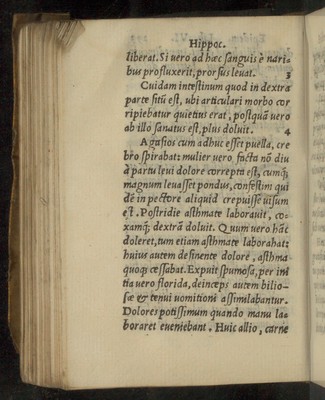 Hippoc.
liberat. Si uero ad hæc sanguis è nari
bus profluxerit, prorsus leuat. 3
Cuidam intestinum quod in dextra
parte sitū est, ubi articulari morbo cor
ripiebatur quietius erat, postquā uero
ab illo sanatus est, plus doluit. 4
Agasios cum adhuc esset puella, cre
bro spirabat: mulier uero facta nō diu
à partu leui dolore correpta est, cumq;
magnum leuasset pondus, confestim qui
dē in pectore aliquid crepuisse uisum
est. Postridie asthmate laborauit, co-
xamq; dextrā doluit. Quum uero hāc
doleret, tum etiam asthmate laborabat:
huius autem desinente dolore, asthma
quoq; cessabat. Expuit spumosa, per ini
tia uero florida, deinceps autem bilio-
sæ & tenui uomitioni assimilabantur.
Dolores potissimum quando manu la-
boraret eueniebant. Huic allio, carne